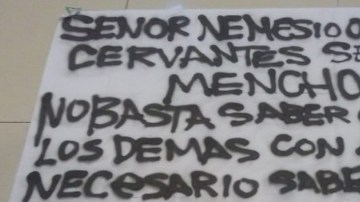 SEÑOR NEMESIO
CERVANTES
MENCHO
NO BASTA SABER
LOS DEMAS CON
NECESARIO SABE